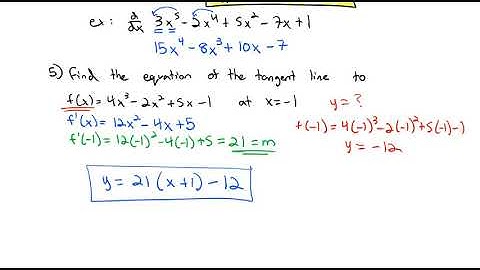 ex: d/dx 3x⁵ - 2x⁴ + 5x² - 7x + 1
15x⁴ - 8x³ + 10x - 7
5) Find the equation of the tangent line to
f(x) = 4x³ - 2x² + 5x - 1 at x = -1 y = ?
f'(x) = 12x² - 4x + 5
f(-1) = 4(-1)³ - 2(-1)² + 5(-1) - 1
f'(-1) = 12(-1)² - 4(-1) + 5 = 21 = m
y = -12
y = 21(x+1) - 12